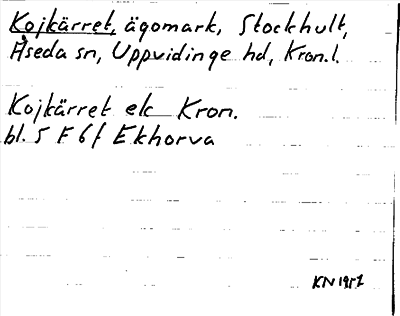 Kojkärret, ägomark, Stockhult,
Åseda sn, Uppvidinge hd, Kron.l.
Kojkärret ek Kron.
bl. 5 F 6 f Ekhorva
KN 1951